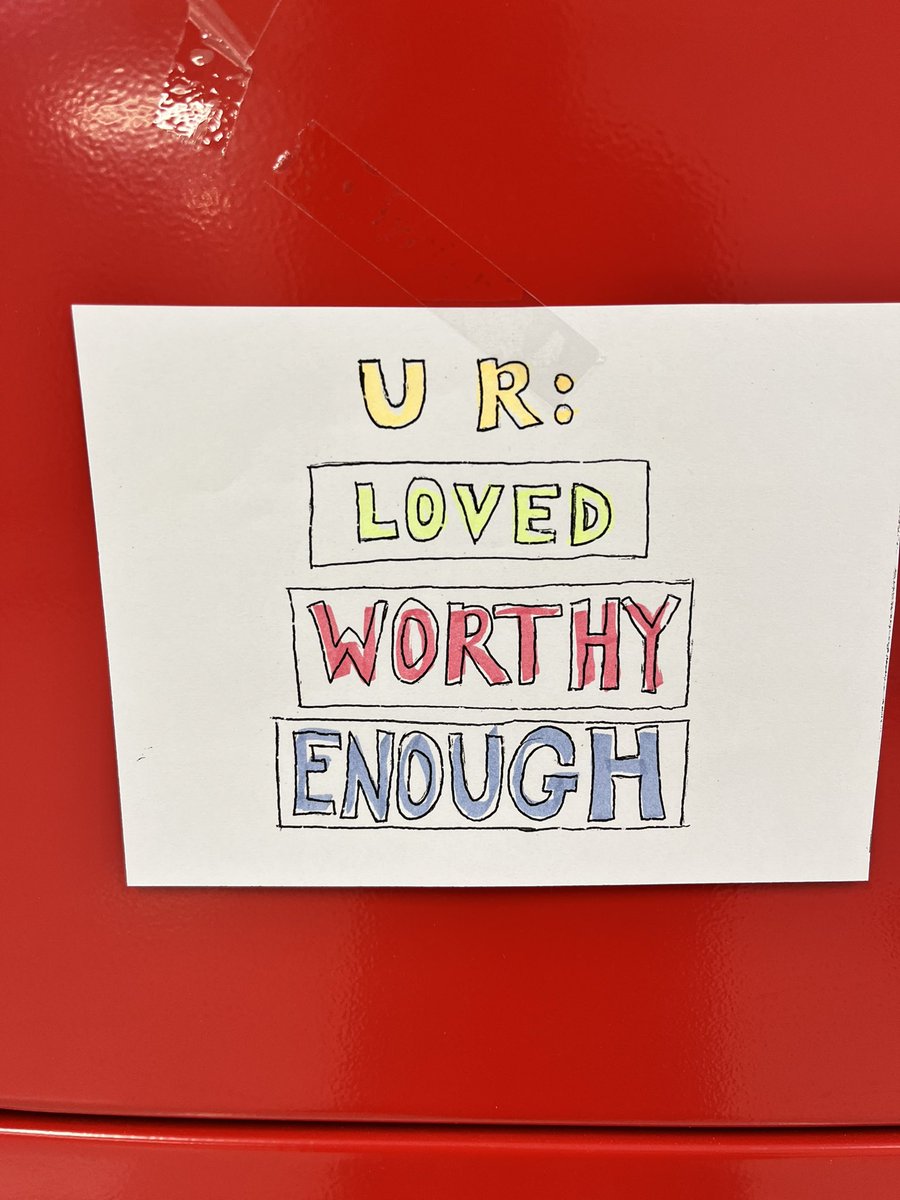 U R:
LOVED
WORTHY
ENOUGH